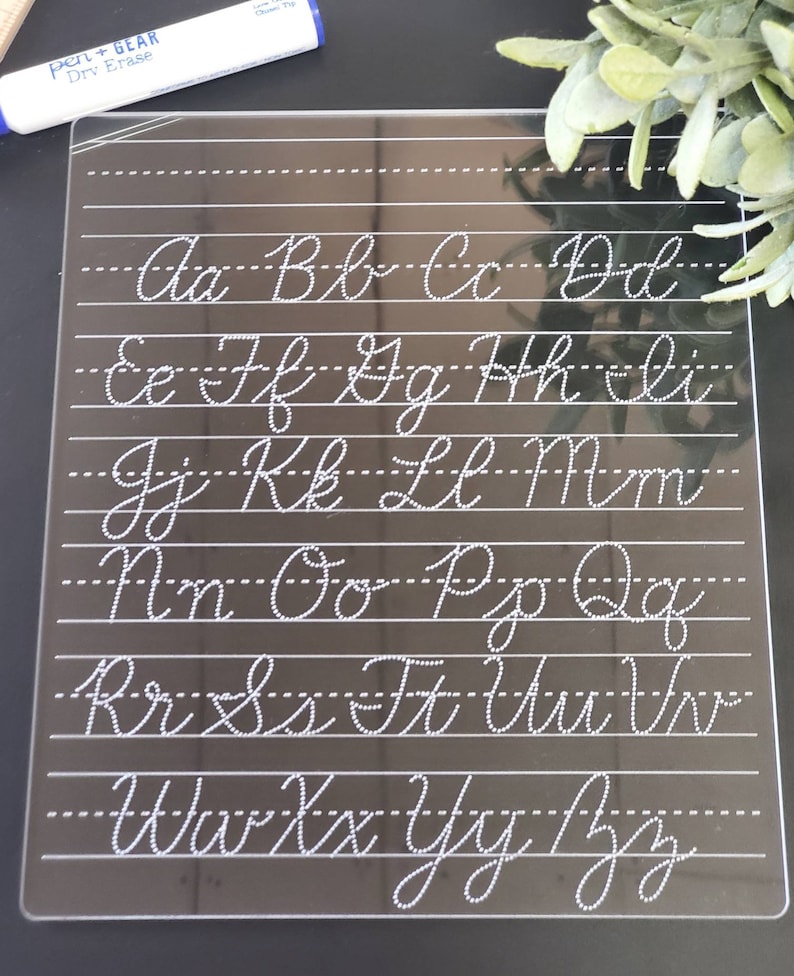 pen + GEAR
Dry Erase
Chisel Tip
Aa Bb Cc Dd
Ee Ff Gg Hh Ii
Jj Kk Ll Mm
Nn Oo Pp Qq
Rr Ss Tt Uu Vv
Ww Xx Yy Zz